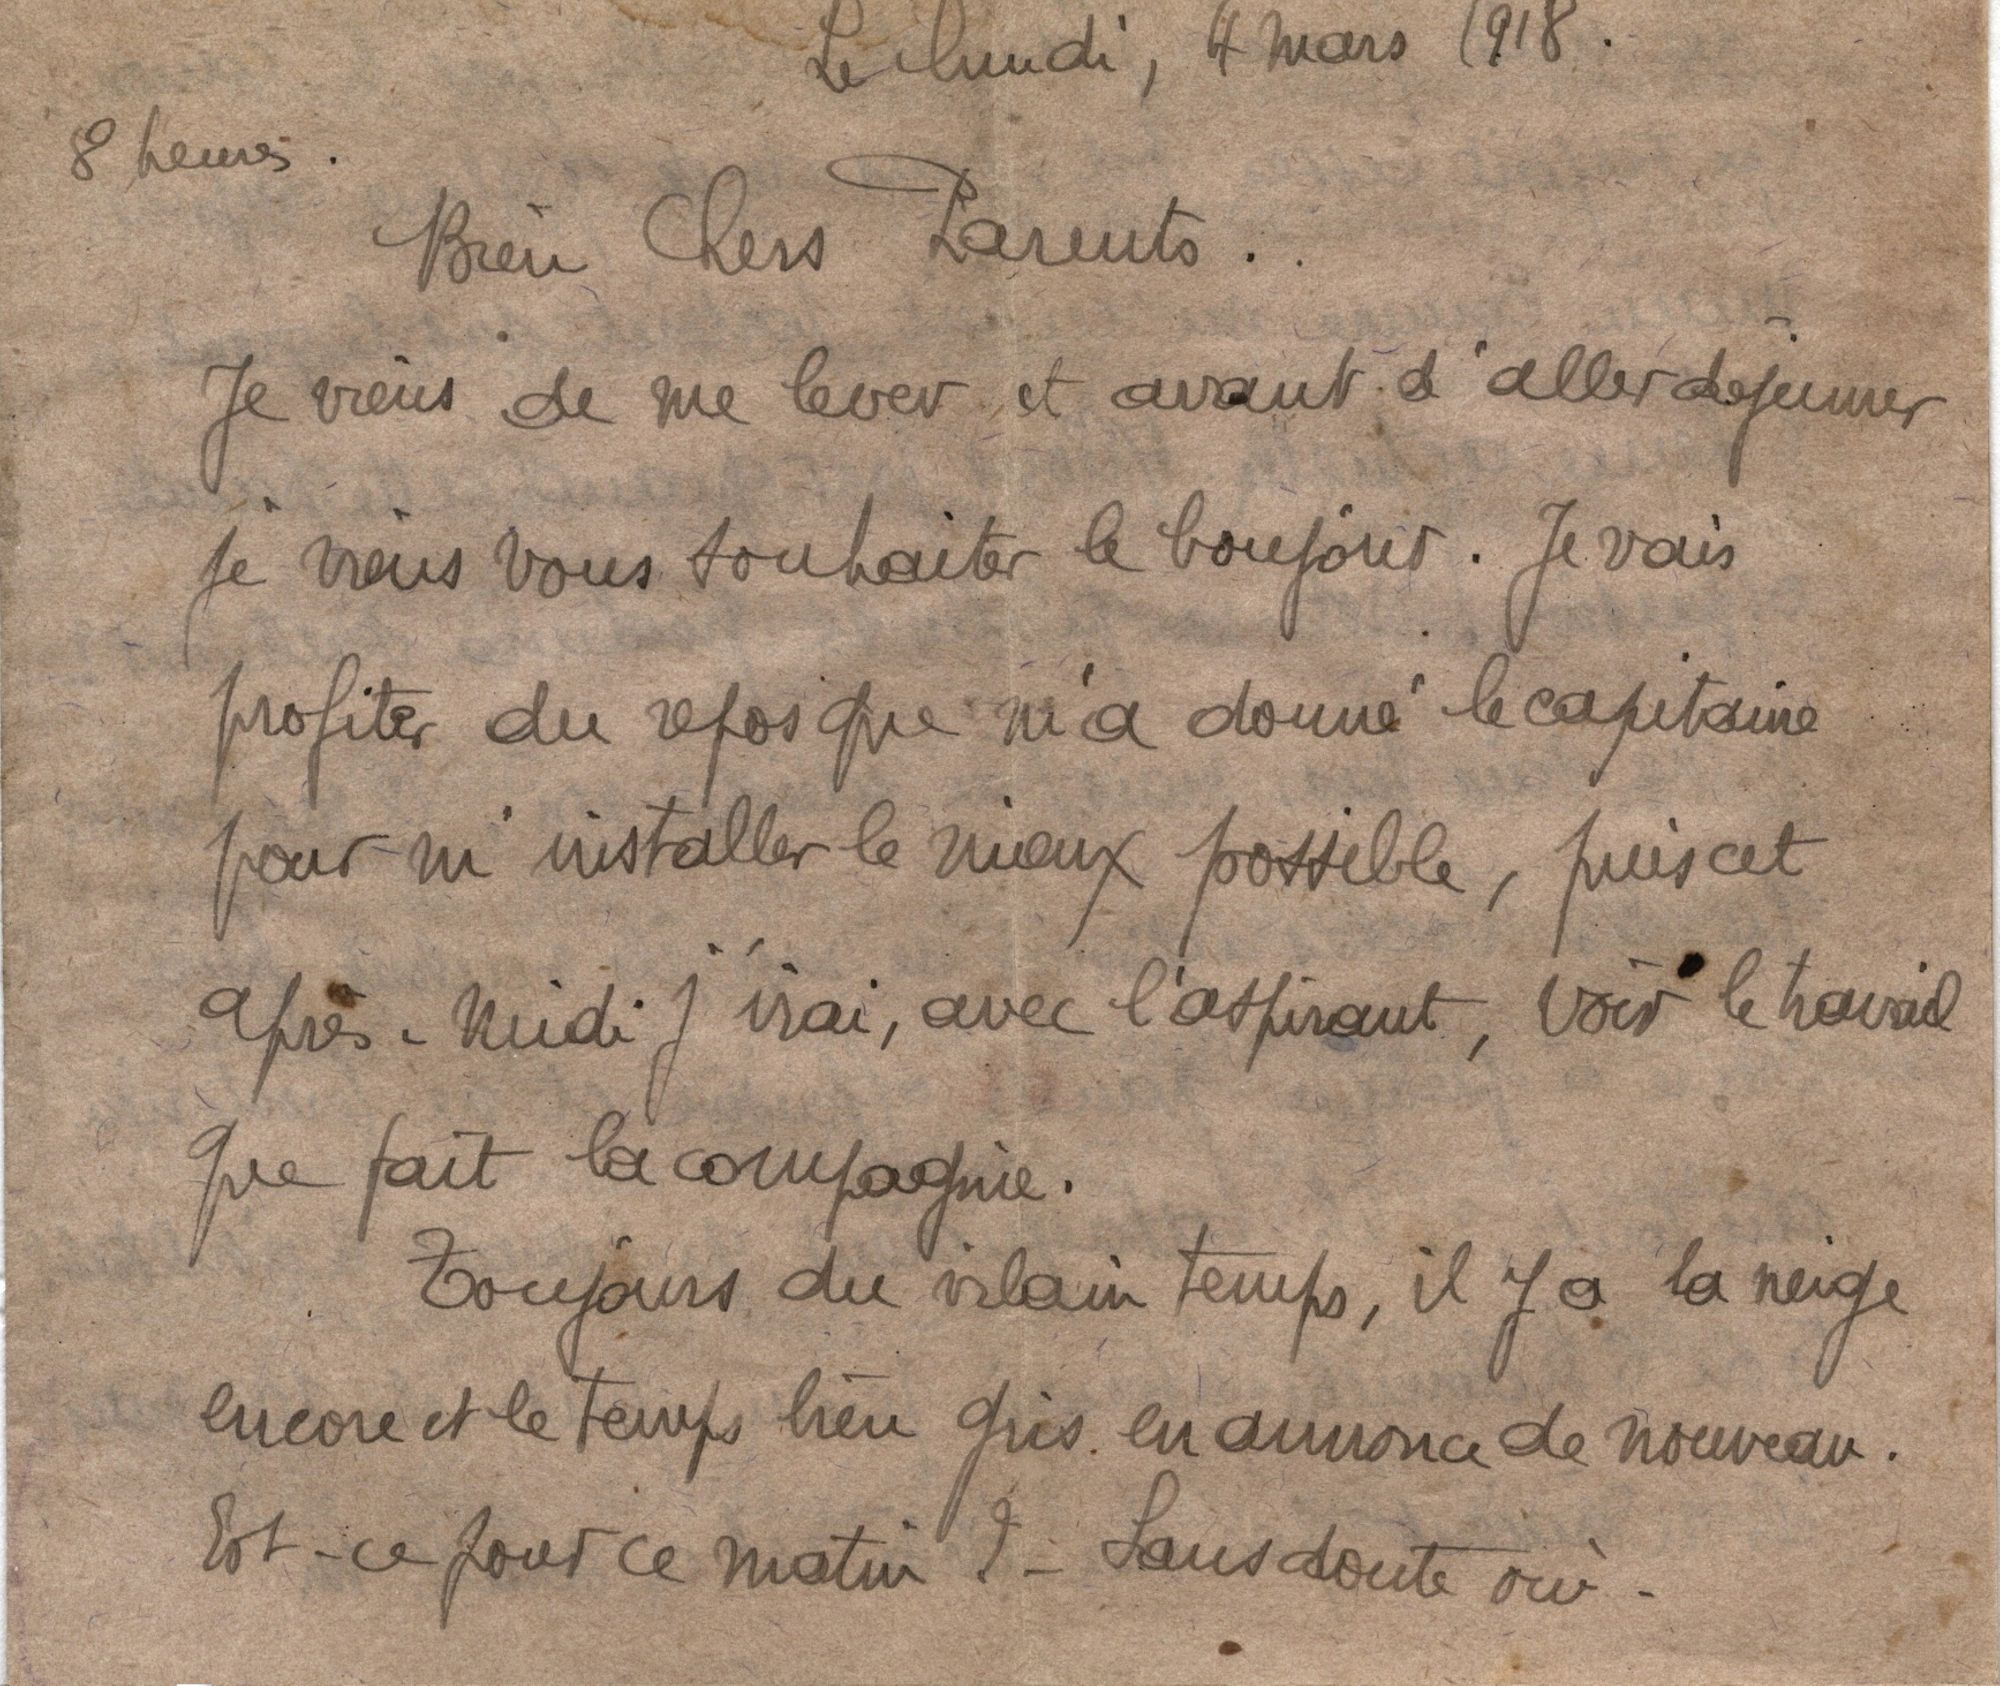 Le lundi, 4 mars 1918.
8 heures.
Bien Chers Parents.
Je viens de me lever et avant d'aller déjeuner
je viens vous souhaiter le bonjour. Je vais
profiter du repos que m'a donné le capitaine
pour m'installer le mieux possible, puis cet
après-midi j'irai, avec l'aspirant, voir le travail
que fait la compagnie.
Toujours du vilain temps, il y a la neige
encore et le temps bien gris en annonce de nouveau.
Est-ce pour ce matin ? - Sans doute oui -